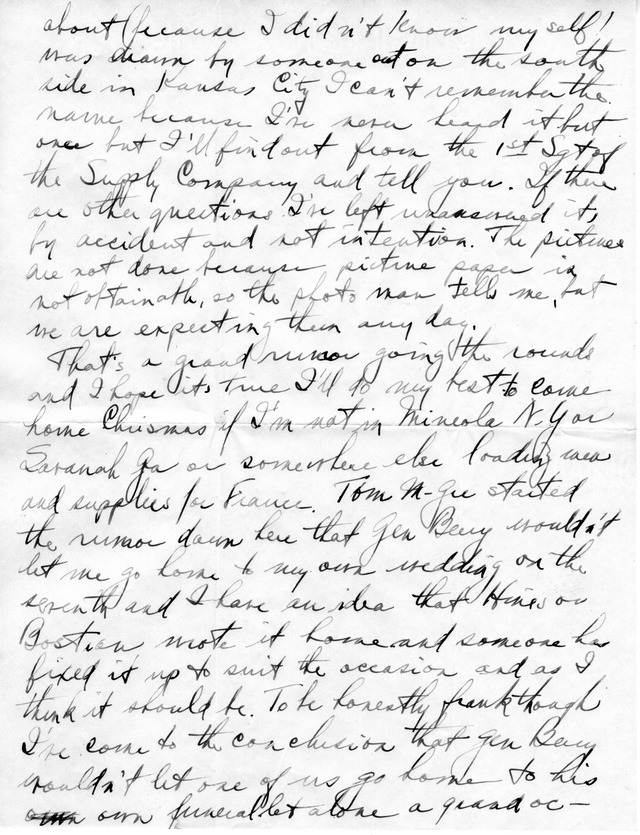 about (because I didn't know myself)
was drawn by someone out on the south
side in Kansas City I can't remember the
name because I've never heard it but
once but I'll find out from the 1st Sgt of
the Supply Company and tell you. If there
are other questions I've left unanswered its
by accident and not intention. The pictures
are not done because picture paper is
not obtainable, so the photo man tells me, but
we are expecting them any day.
That's a grand rumor going the rounds
and I hope its true I'll do my best to come
home Chrismas if I'm not in Mineola N.Y or
Savanah Ga or somewhere else loading men
and supplies for France. Tom M-Gee started
the rumor down here that Gen Berry wouldn't
let me go home to my own wedding on the
seventh and I have an idea that Hines or
Bostian wrote it home and someone has
fixed it up to suit the occasion and as I
think it should be. To be honestly frank though
I've come to the conclusion that Gen Berry
wouldn't let one of us go home to his
own funeral let alone a grand oc-